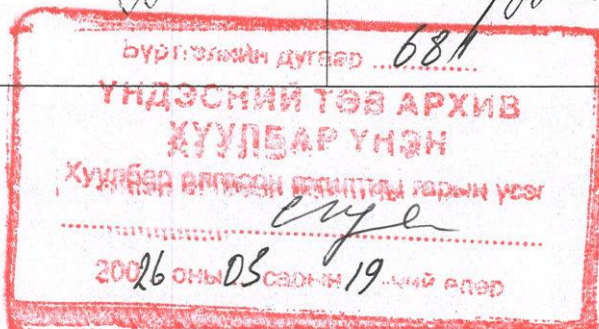 Бүртгэлийн дугаар ..... 681
ҮНДЭСНИЙ ТӨВ АРХИВ
ХУУЛБАР ҮНЭН
Хуулбар олгосон ажилтны гарын үсэг
200 26 оны 03 сарын 19 -ний өдөр